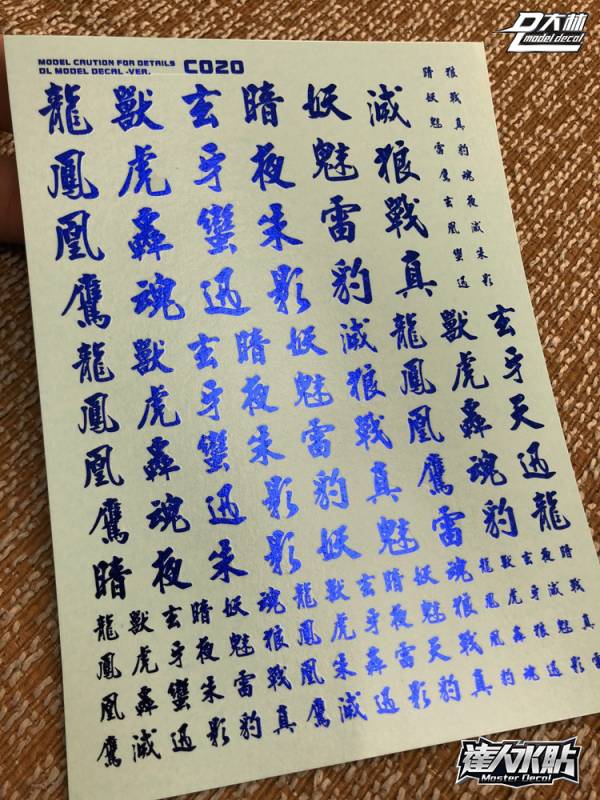 D大林
model decal
MODEL CAUTION FOR DETAILS
DL MODEL DECAL -VER.
C020
暗 狼
妖 戰
魅 真
雷 豹
鷹 魂
玄 夜
凰 滅
蠻 朱
迅 影
龍 獸 玄 暗 妖 滅
鳳 虎 牙 夜 魅 狼
凰 轟 蠻 朱 雷 戰
鷹 魂 迅 影 豹 真
龍 獸 玄 暗 妖 滅 龍 獸 玄
鳳 虎 牙 夜 魅 狼 鳳 虎 牙
凰 轟 蠻 朱 雷 戰 凰 轟 天
鷹 魂 迅 影 豹 真 鷹 魂 迅
暗 夜 朱 影 妖 魅 雷 豹 龍
龍 獸 玄 暗 妖 魂 龍 獸 玄 暗 妖 魂 龍 獸 玄 夜 暗
鳳 虎 牙 夜 魅 狼 鳳 虎 牙 夜 魅 狼 鳳 虎 牙 滅 戰
凰 轟 蠻 朱 雷 戰 凰 朱 轟 雷 天 戰 凰 轟 狼 魅 真
鷹 滅 迅 影 豹 真 鷹 滅 迅 影 豹 真 豹 魂 迅 影 雷
達人水貼
Master Decal